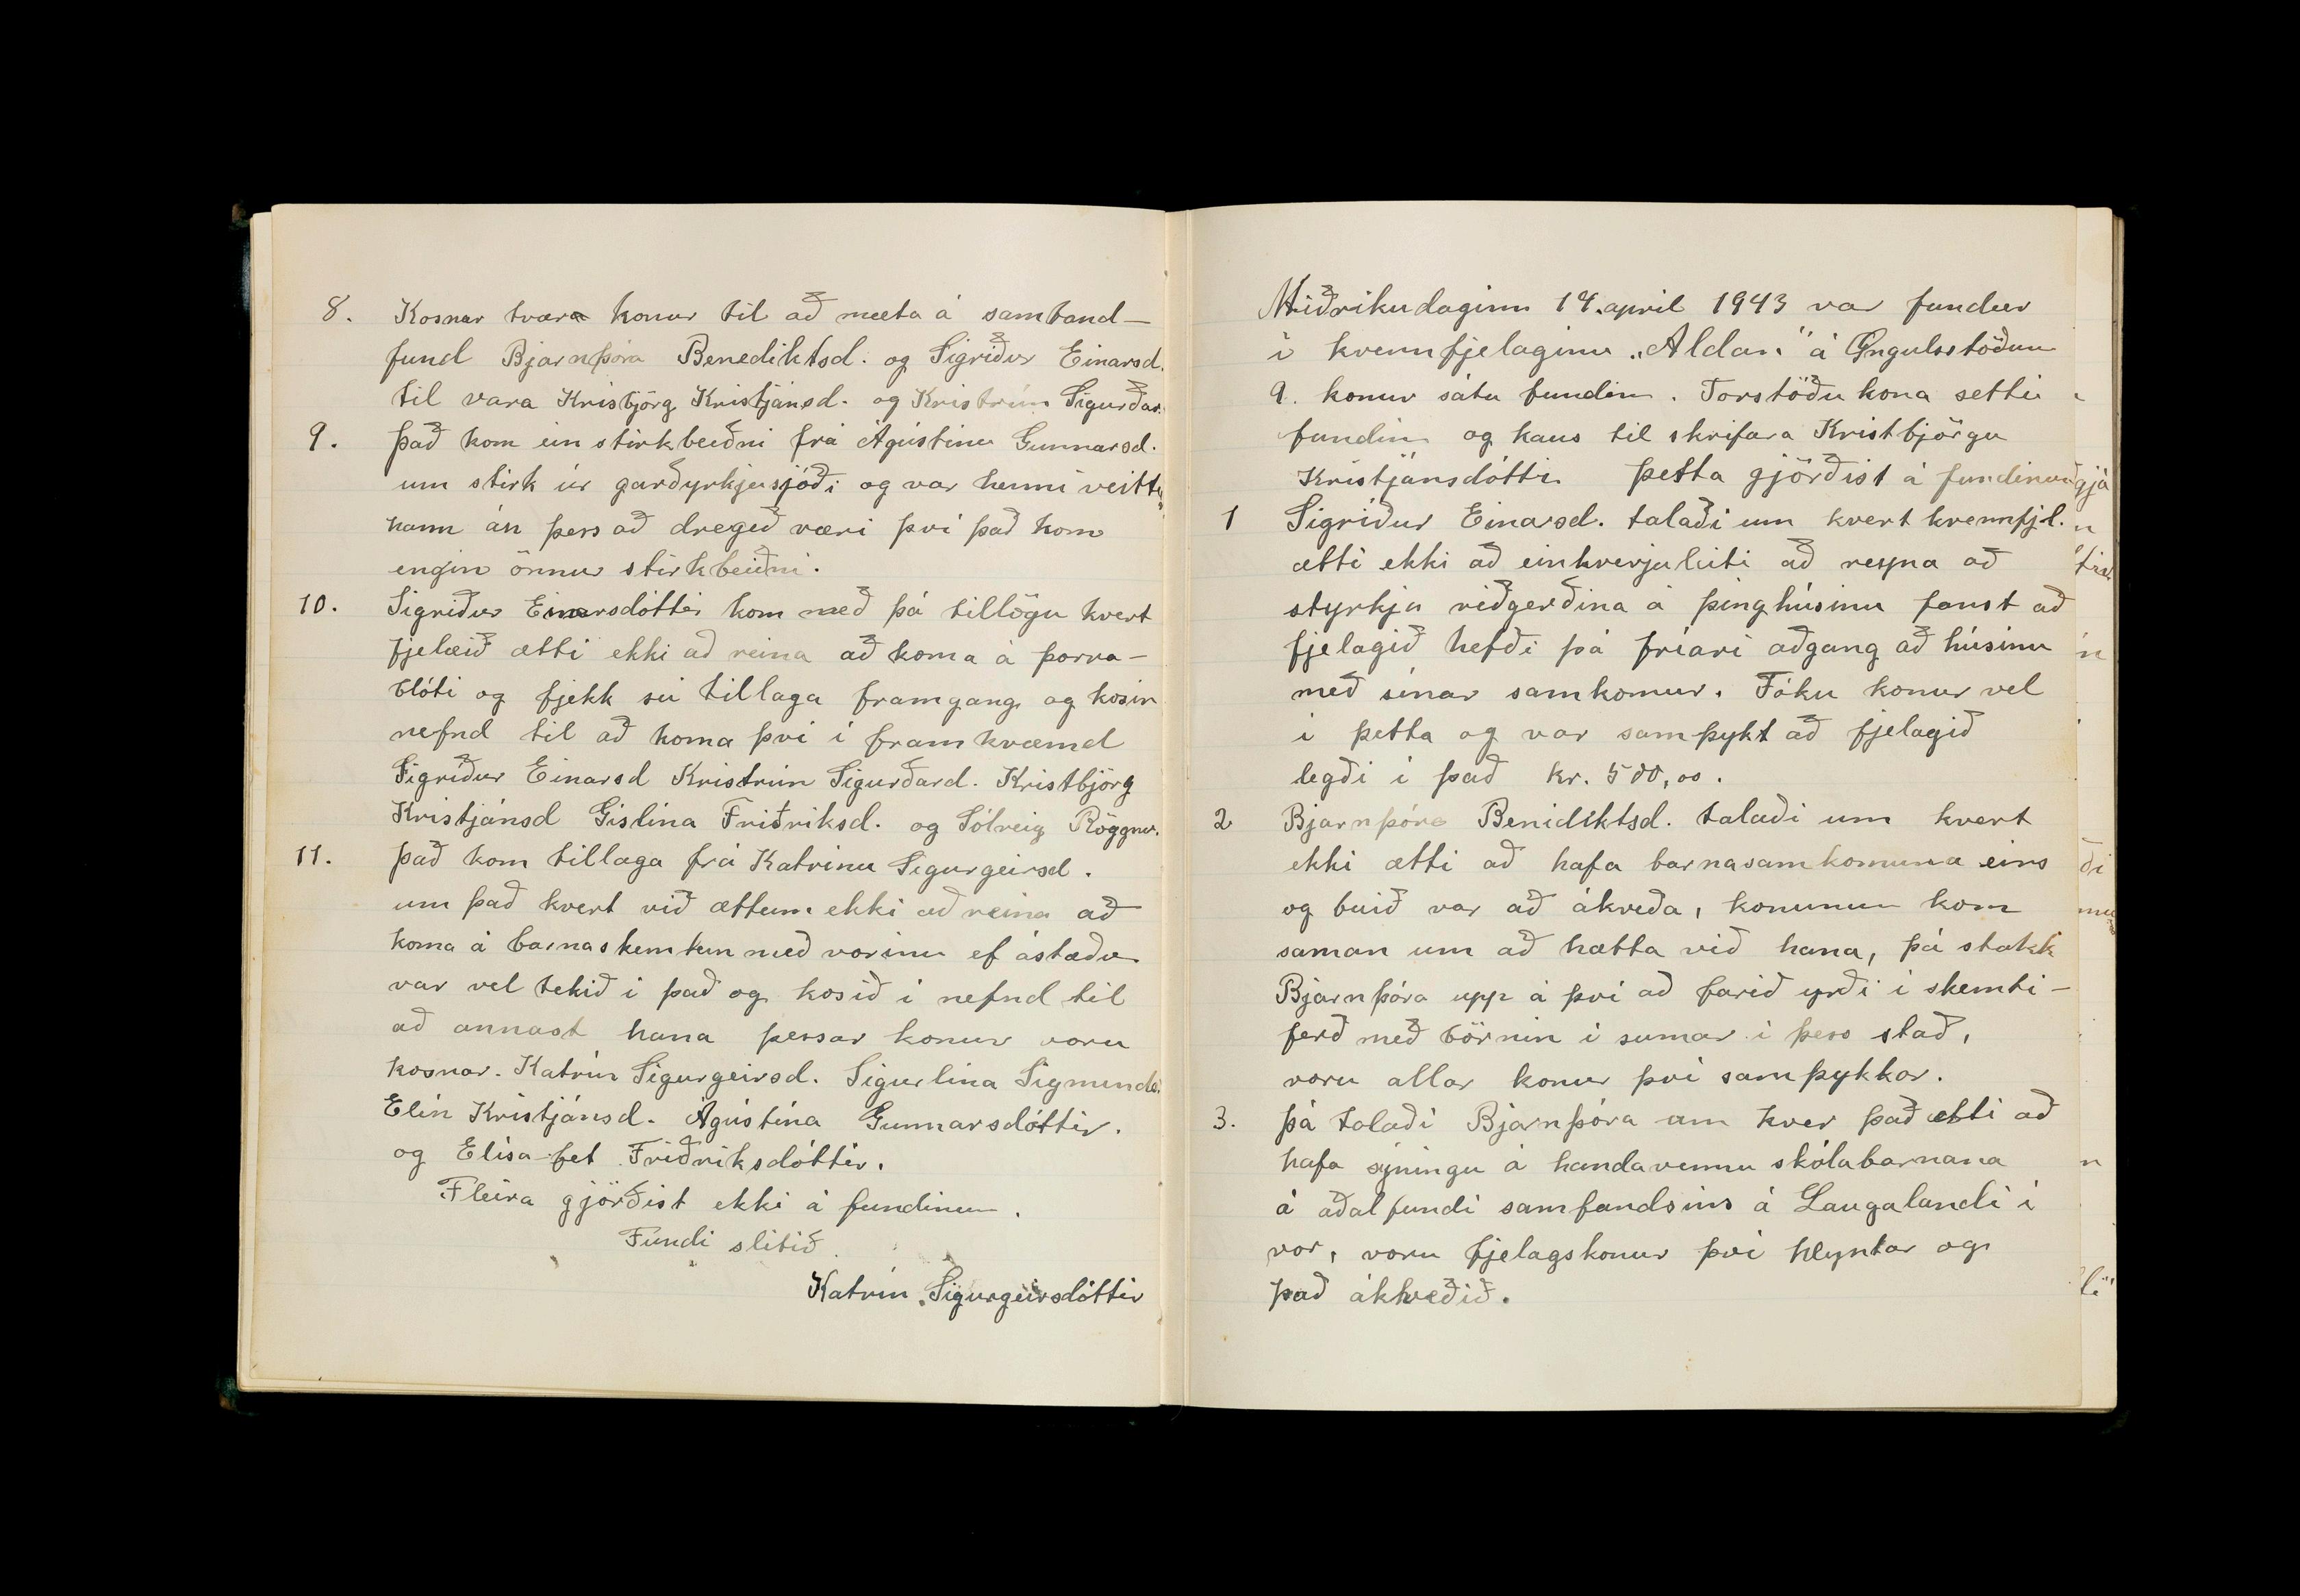 8. Kosnar tvær konur til að mæta á samband-
fund Bjarnþóra Benediktsd. og Sigríður Einarsd.
til vara Krisbjörg Kristjánsd. og Kristrún Sigurðar.
9. Það kom ein stirkbeiðni frá Ágústínu Gunnarsd.
um stirk úr garðyrkjusjóði og var henni veittur
hann án þess að dregið væri því það kom
engin önnur stirkbeiðni.
10. Sigríður Einarsdóttir kom með þá tillögu kvert
fjelæið ætti ekki að reina að koma á þorra-
blóti og fjekk sú tillaga framgang og kosin
nefnd til að koma því í framkvæmd
Sigríður Einarsd Kristrún Sigurðard. Kristbjörg
Kristjánsd Gíslína Friðriksd. og Sólveig Röggnv.
11. Það kom tillaga frá Katrínu Sigurgeirsd.
um það kvert við ættum ekki að reina að
koma á barnaskemtun með vorinu ef ástæður
var vel tekið í það og kosið í nefnd til
að annast hana þessar konur voru
kosnar. Katrín Sigurgeirsd. Sigurlína Sigmundsd.
Elín Kristjánsd. Ágústína Gunnarsdóttir.
og Elísabet Friðriksdóttir.
Fleira gjörðist ekki á fundinum.
Fundi slitið.
Katrín Sigurgeirsdóttir
Miðvikudaginn 14. apríl 1943 var fundur
í kvennfjelaginu „Aldan" á Öngulsstöðum
9. konur sátu fundin. Forstöðu kona setti
fundin og kaus til skrifara Kristbjörgu
Kristjánsdóttir. Þetta gjörðist á fundinum
1 Sigríður Einarsd. talaði um kvert kvennfjl.
ætti ekki að einhverjuleiti að reyna að
styrkja viðgerðina á þinghúsinu fanst að
fjelagið hefði þá fríari aðgang að húsinu
með sínar samkomur. Tóku konur vel
í þetta og var samþykt að fjelagið
legði í það kr. 500,00.
2 Bjarnþóra Benidiktsd. talaði um kvert
ekki ætti að hafa barnasamkomuna eins
og búið var að ákveða, konunum kom
saman um að hætta við hana, þá stakk
Bjarnþóra upp á því að farið yrði í skemti-
ferð með börnin í sumar í þess stað,
voru allar konur því samþykkar.
3. Þá talaði Bjarnþóra um hver það ætti að
hafa sýningu á handavennu skólabarnana
á aðalfundi sambandsins á Laugalandi í
vor, voru fjelagskonur því hlyntar og
það ákhveðið.